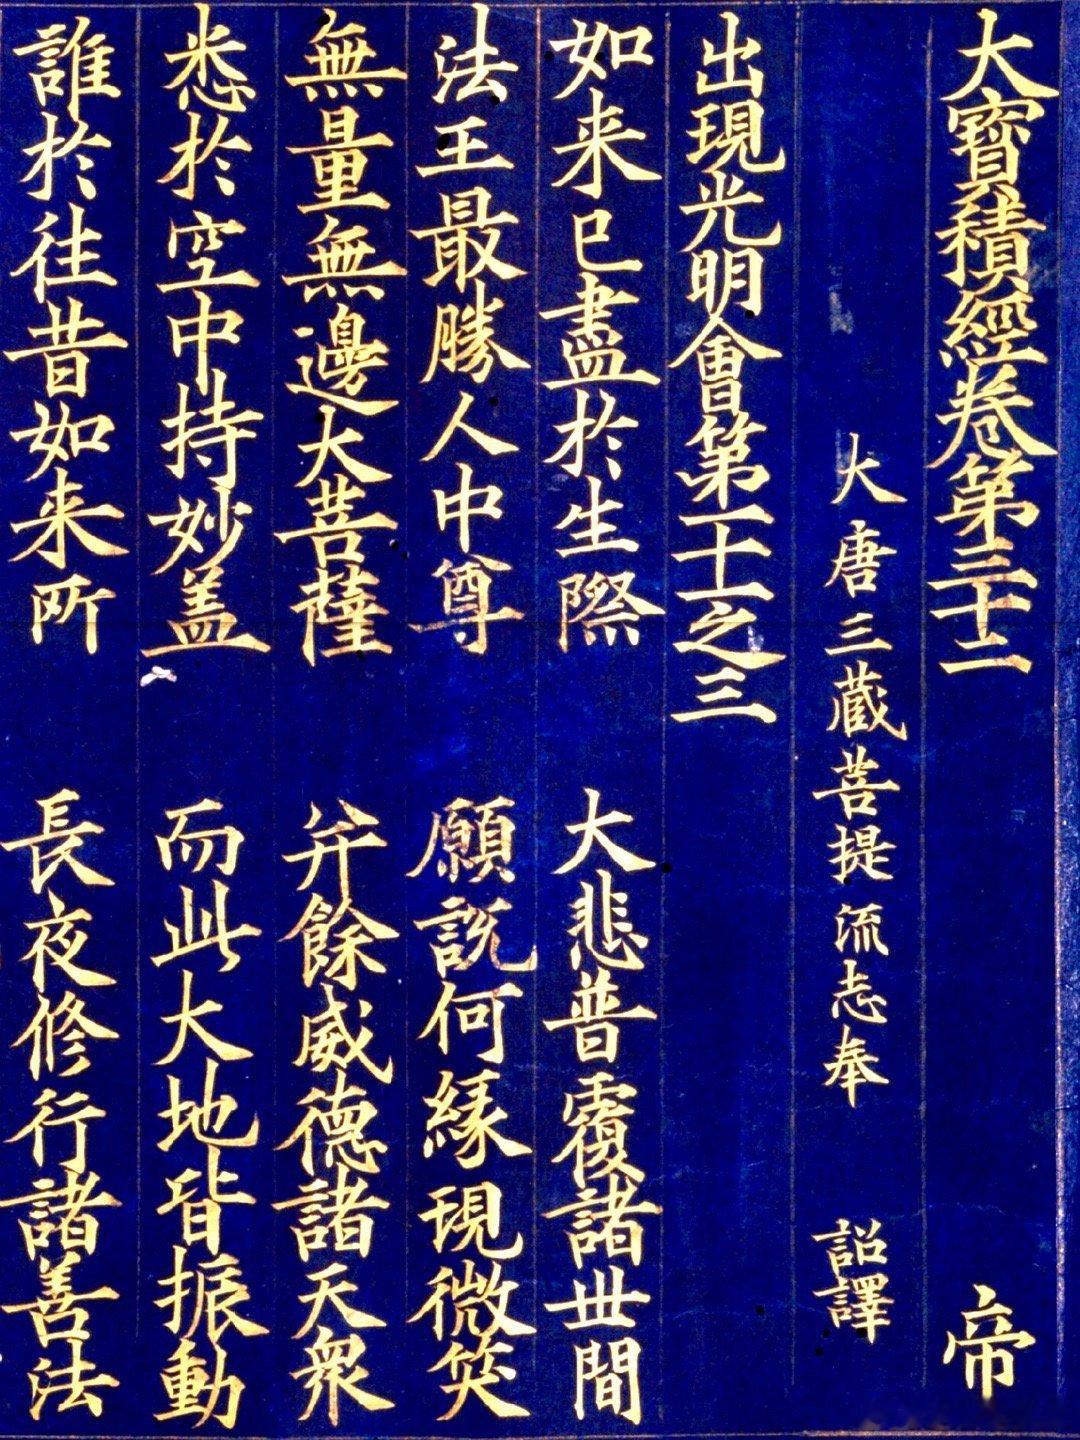 大寳積經卷第三十二 帝
大唐三藏菩提流志奉 詔譯
出現光明會第十一之三
如来已盡於生際 大悲普覆諸世間
法王最勝人中尊 願說何緣現微笑
無量無邊大菩薩 并餘威德諸天衆
悉於空中持妙盖 而此大地皆振動
誰於往昔如来所 長夜修行諸善法